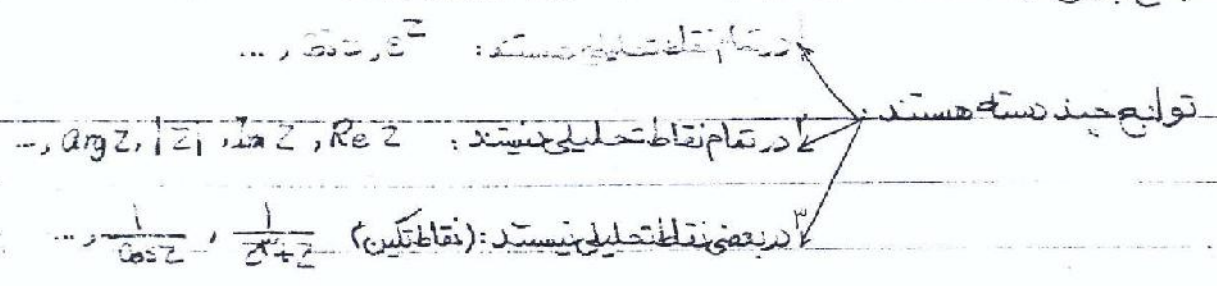 توابع چند دسته هستند:
۱ در تمام نقاط تحلیلی هستند: e^z , Cos z , ...
۲ در تمام نقاط تحلیلی نیستند: Re z , Im z , |z| , arg z , ...
۳ در بعضی نقاط تحلیلی نیستند: (نقاط تکین) 1/(z^3+z) , 1/Cos z , ...